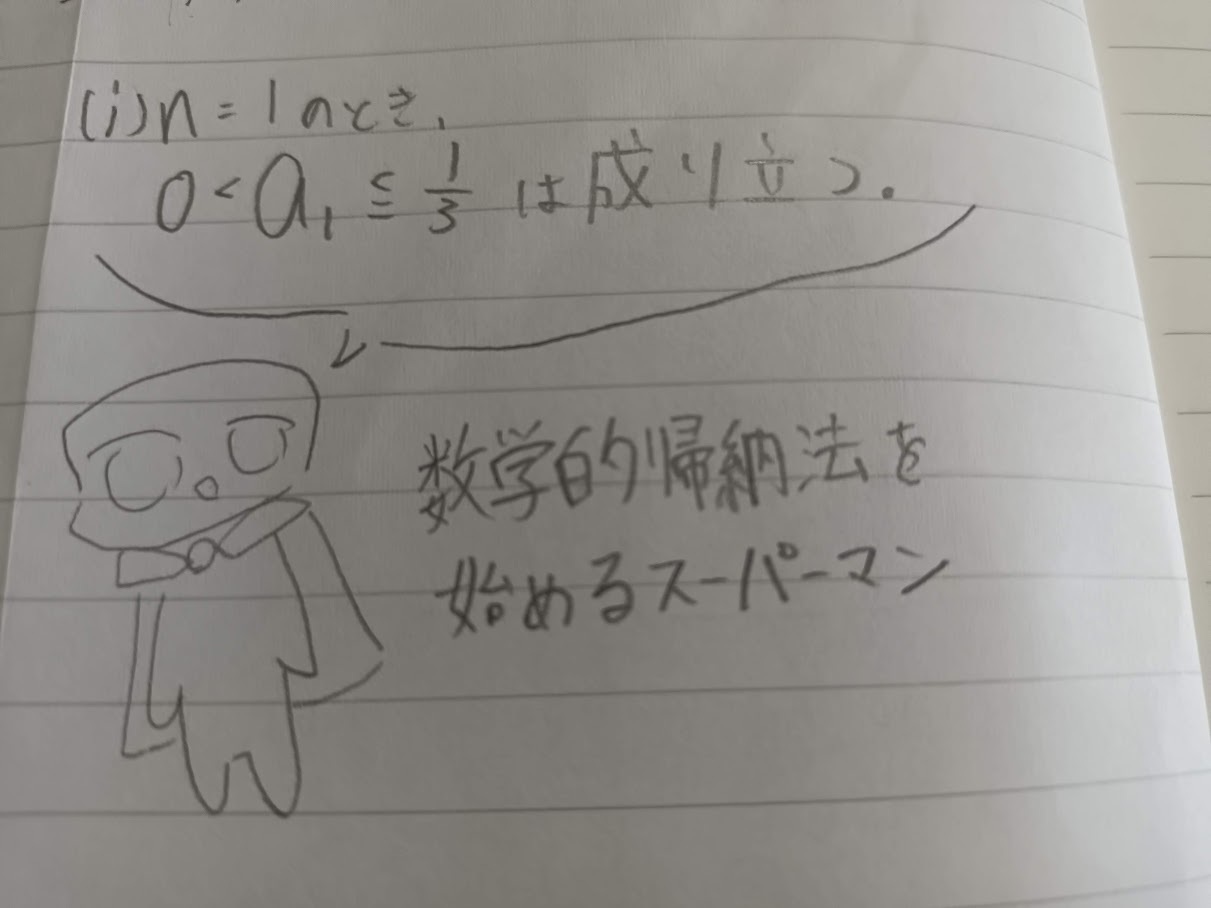 (i) n = 1 のとき,
0 < a₁ ≦ 1/3 は成り立つ.
数学的帰納法を
始めるスーパーマン